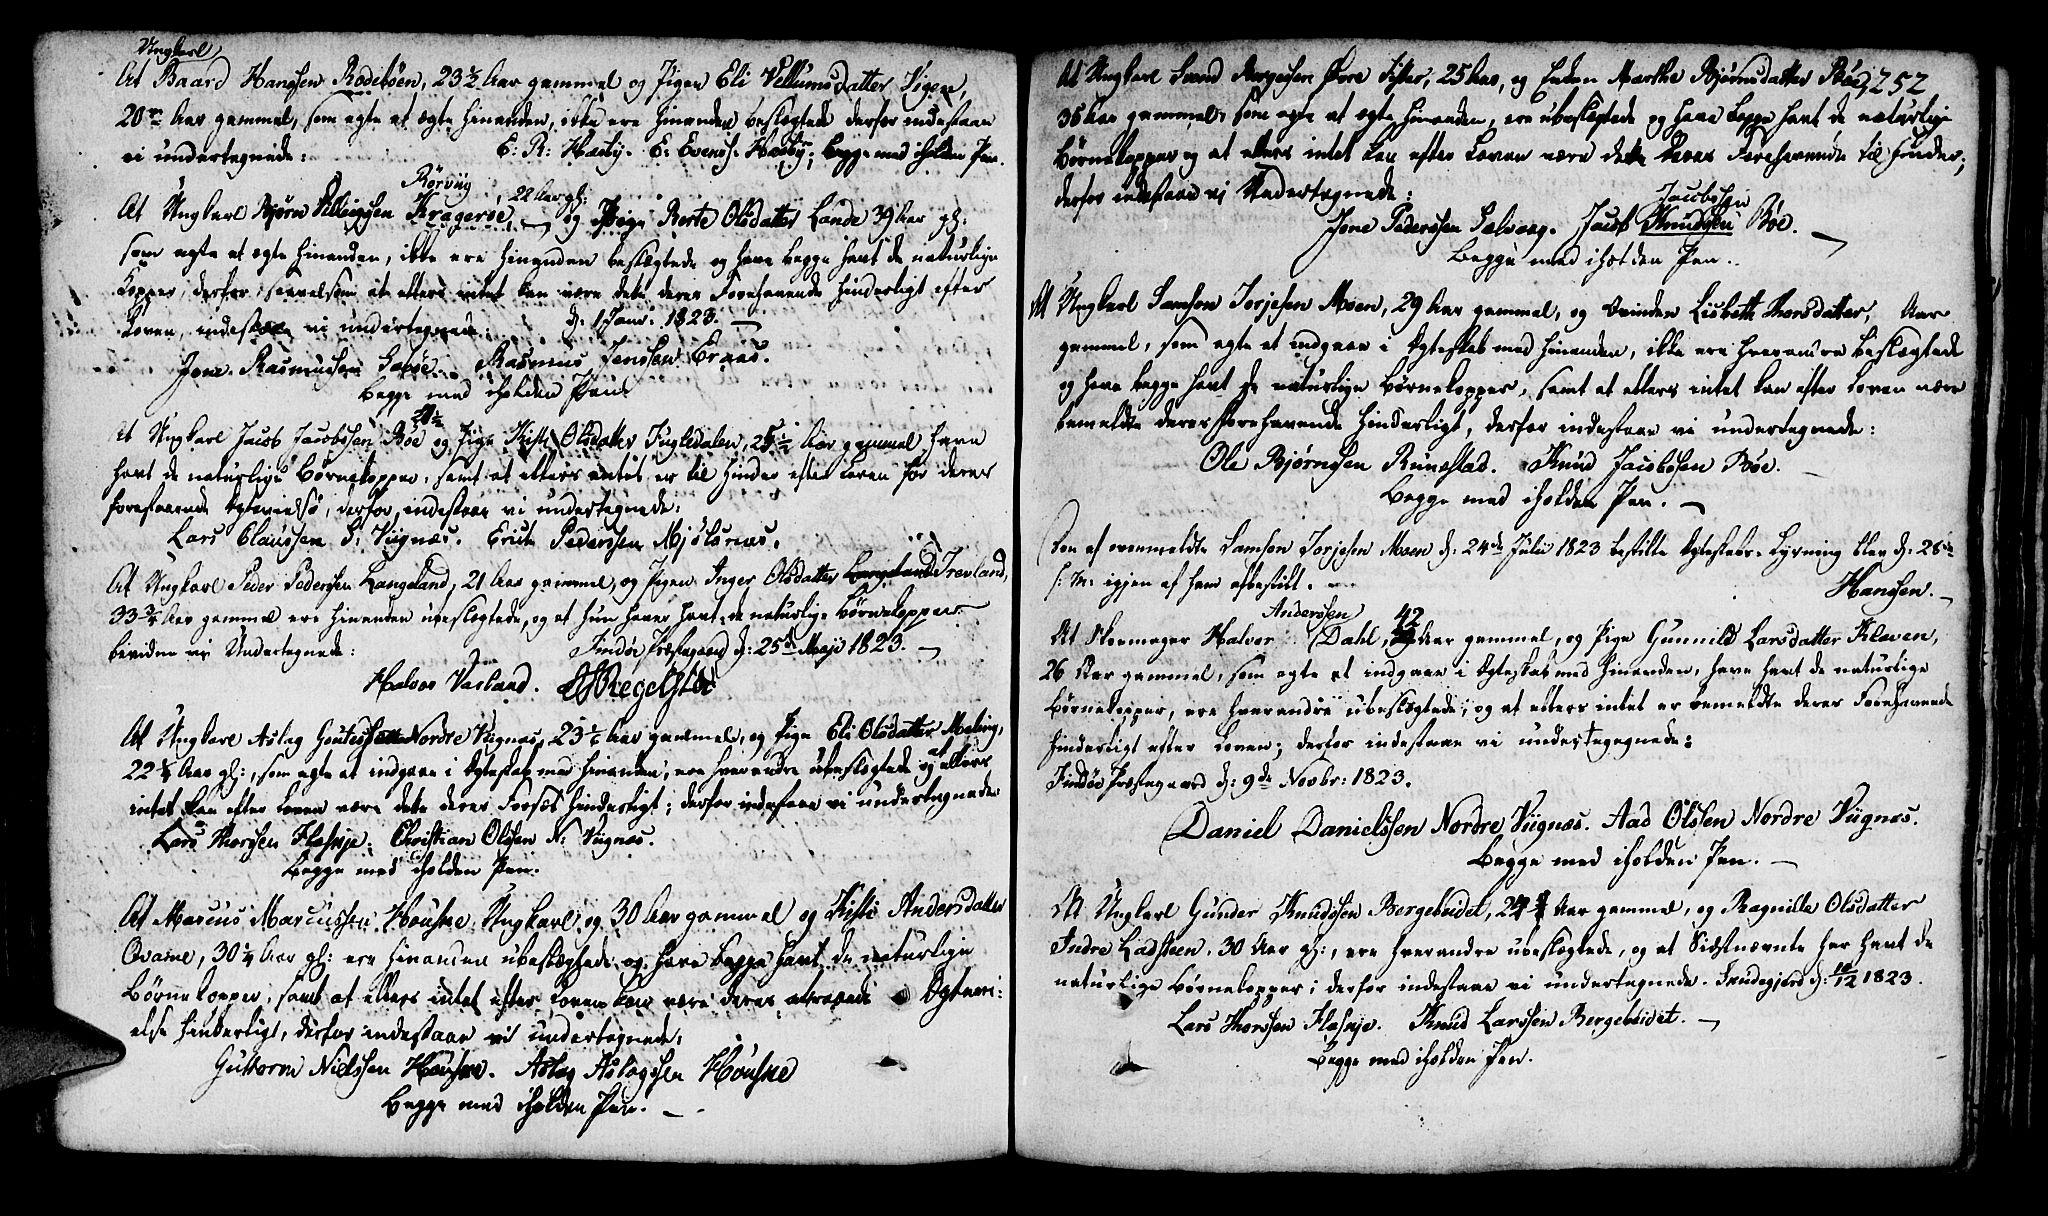 Ungkarl
At Baard Hanssen Rødebøen, 23½ Aar gammel og Pigen Eli Vellumsdatter Vigen,
20 Aar gammel, som agte at ægte hinanden, ikke ere hinanden beslægtede derfor indestaae
vi undertegnede: E: R: Hæbÿ. E: Evens: Hæbÿ, begge med iholden Pen.
Rørviig, 22 Aar gl:
At Ungkarl Bjørn Kragerøe, og Pige Berte Olsdatter Lande 39 Aar gl:
som agte at ægte hinanden, ikke ere hinanden beslægtede og have begge havt de naturlige
Kopper, derfor, saavelsom at ellers intet kan være dette deres Forehavende hinderligt efter
Loven, indestaae vi undertegnede. d: 1 Janr: 1823.
Jone Rasmussen Rasmus Jensen Eraas.
Begge med iholden Pen.
21½
At Ungkarl Jacob Jacobsen Bøe og Pige Kisti Olsdatter Fugledalen, 25½ Aar gammel have
havt de naturlige Børnekopper, samt at ellers intet er til Hinder efter Loven for deres
forestaaende Ægtevielse, derfor indestaae vi undertegnede:
Lars Claussen S: Viignæs. Erich Pederssen Mjølsnæs.
At Ungkarl Peder Pederssen Langeland, 21 Aar gammel, og Pigen Inger Olsdatter Langeland Trevland,
33¾ Aar gammel ere hinanden ubeslægtede, og at hun haver havt de naturlige Børnekopper
bevidne vi Undertegnede: Findøe Præstegaard d: 25de Maji 1823.
Halvor Vasland.
At Ungkarl Aslag Nordre Viignæs, 23½ Aar gammel, og Pige Eli Olsdatter Meling,
22¼ Aar gl:, som agte at indgaae i Ægteskab med hinanden, ere hverandre ubeslægtede og at ellers
intet kan efter Loven være dette deres Forsæt hinderligt; derfor indestaae vi undertegnede
Lars Thorsen Fleskje. Christian Olssen N: Viignæs.
Begge med iholden Pen.
At Marcus Marcussen Houske Ungkarl og 30 Aar gammel og Kisti Andersdatter
Qvame, 30¼ Aar gl: ere hinanden ubeslægtede og have begge havt de naturlige
Børnekopper, samt at ellers intet efter Loven kan være deres attraaede Ægtevi:
else hinderligt, derfor indestaae vi undertegnede:
Guttorm Nielssen Houske. Aslag Aslagssen Houske
Begge med iholden Pen.
252
At Ungkarl Svend Øvre Fister, 25 Aar, og Enken Marthe Bjørnsdatter Bøe,
36 Aar gammel, som agte at ægte hinanden, ere ubeslægtede og have begge havt de naturlige
Børnekopper og at ellers intet kan efter Loven være dette deres Forehavende til Hinder,
derfor indestaae vi Undertegnede:
Jacobsen
Jone Pederssen Jacob Knudssen Bøe.
Begge med iholden Pen.
At Ungkarl Samson Torjesen Moen, 29 Aar gammel, og Qvinden Lisbeth Thorsdatter, Aar
gammel, som agte at indgaae i Ægteskab med hinanden, ikke ere hverandre beslægtede
og have begge havt de naturlige Børnekopper, samt at ellers intet kan efter Loven være
bemeldte deres Forehavende hinderligt, derfor indestaae vi undertegnede:
Ole Bjørnsen Runestad. Knud Jacobsen Bøe.
Begge med iholden Pen.
Den af ovenmeldte Samson Torjesen Moen d: 24de Julii 1823 bestilte Ægteskabs-Lysning blev d: 26de
s: M: igjen af ham afbestilt.
Hanssen.
Anderssen 42
At Skomager Halvor Dahl, Aar gammel, og Pige Gunnild Larsdatter Kleven,
26 Aar gammel, som agte at indgaae i Ægteskab med hinanden, have havt de naturlige
Børnekopper, ere hverandre ubeslægtede, og at ellers intet er bemeldte deres Forehavende
hinderligt efter Loven; derfor indestaae vi undertegnede:
Findøe Præstegaard d: 9de Novbr: 1823.
Daniel Danielssen Nordre Viignæs. Aad Olssen Nordre Viignæs.
Begge med iholden Pen.
At Ungkarl Gunder Knudssen Bergebeidet, Aar gammel, og Ragnilla Olsdatter
Indre Ladsteen, 30 Aar gl:, ere hverandre ubeslægtede, og at Sidstnævnte har havt de
naturlige Børnekopper; derfor indestaae vi undertegnede. d: 10/12 1823.
Lars Thorssen Fleskje. Knud Larssen Bergebeidet.
Begge med iholden Pen.